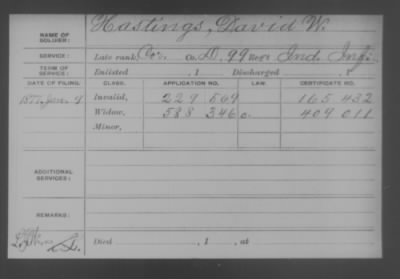 NAME OF SOLDIER: Hastings, David W.
SERVICE: Late rank Cor. Co. D, 99 REG'T Ind. Inf.
TERM OF SERVICE: Enlisted , 1 Discharged , 1
DATE OF FILING. CLASS. APPLICATION NO. LAW. CERTIFICATE NO.
1877, Jan. 4 Invalid, 229 569 165 432
Widow, 588 346 c. 409 011
Minor,
ADDITIONAL SERVICES:
REMARKS:
Died , 1 , at